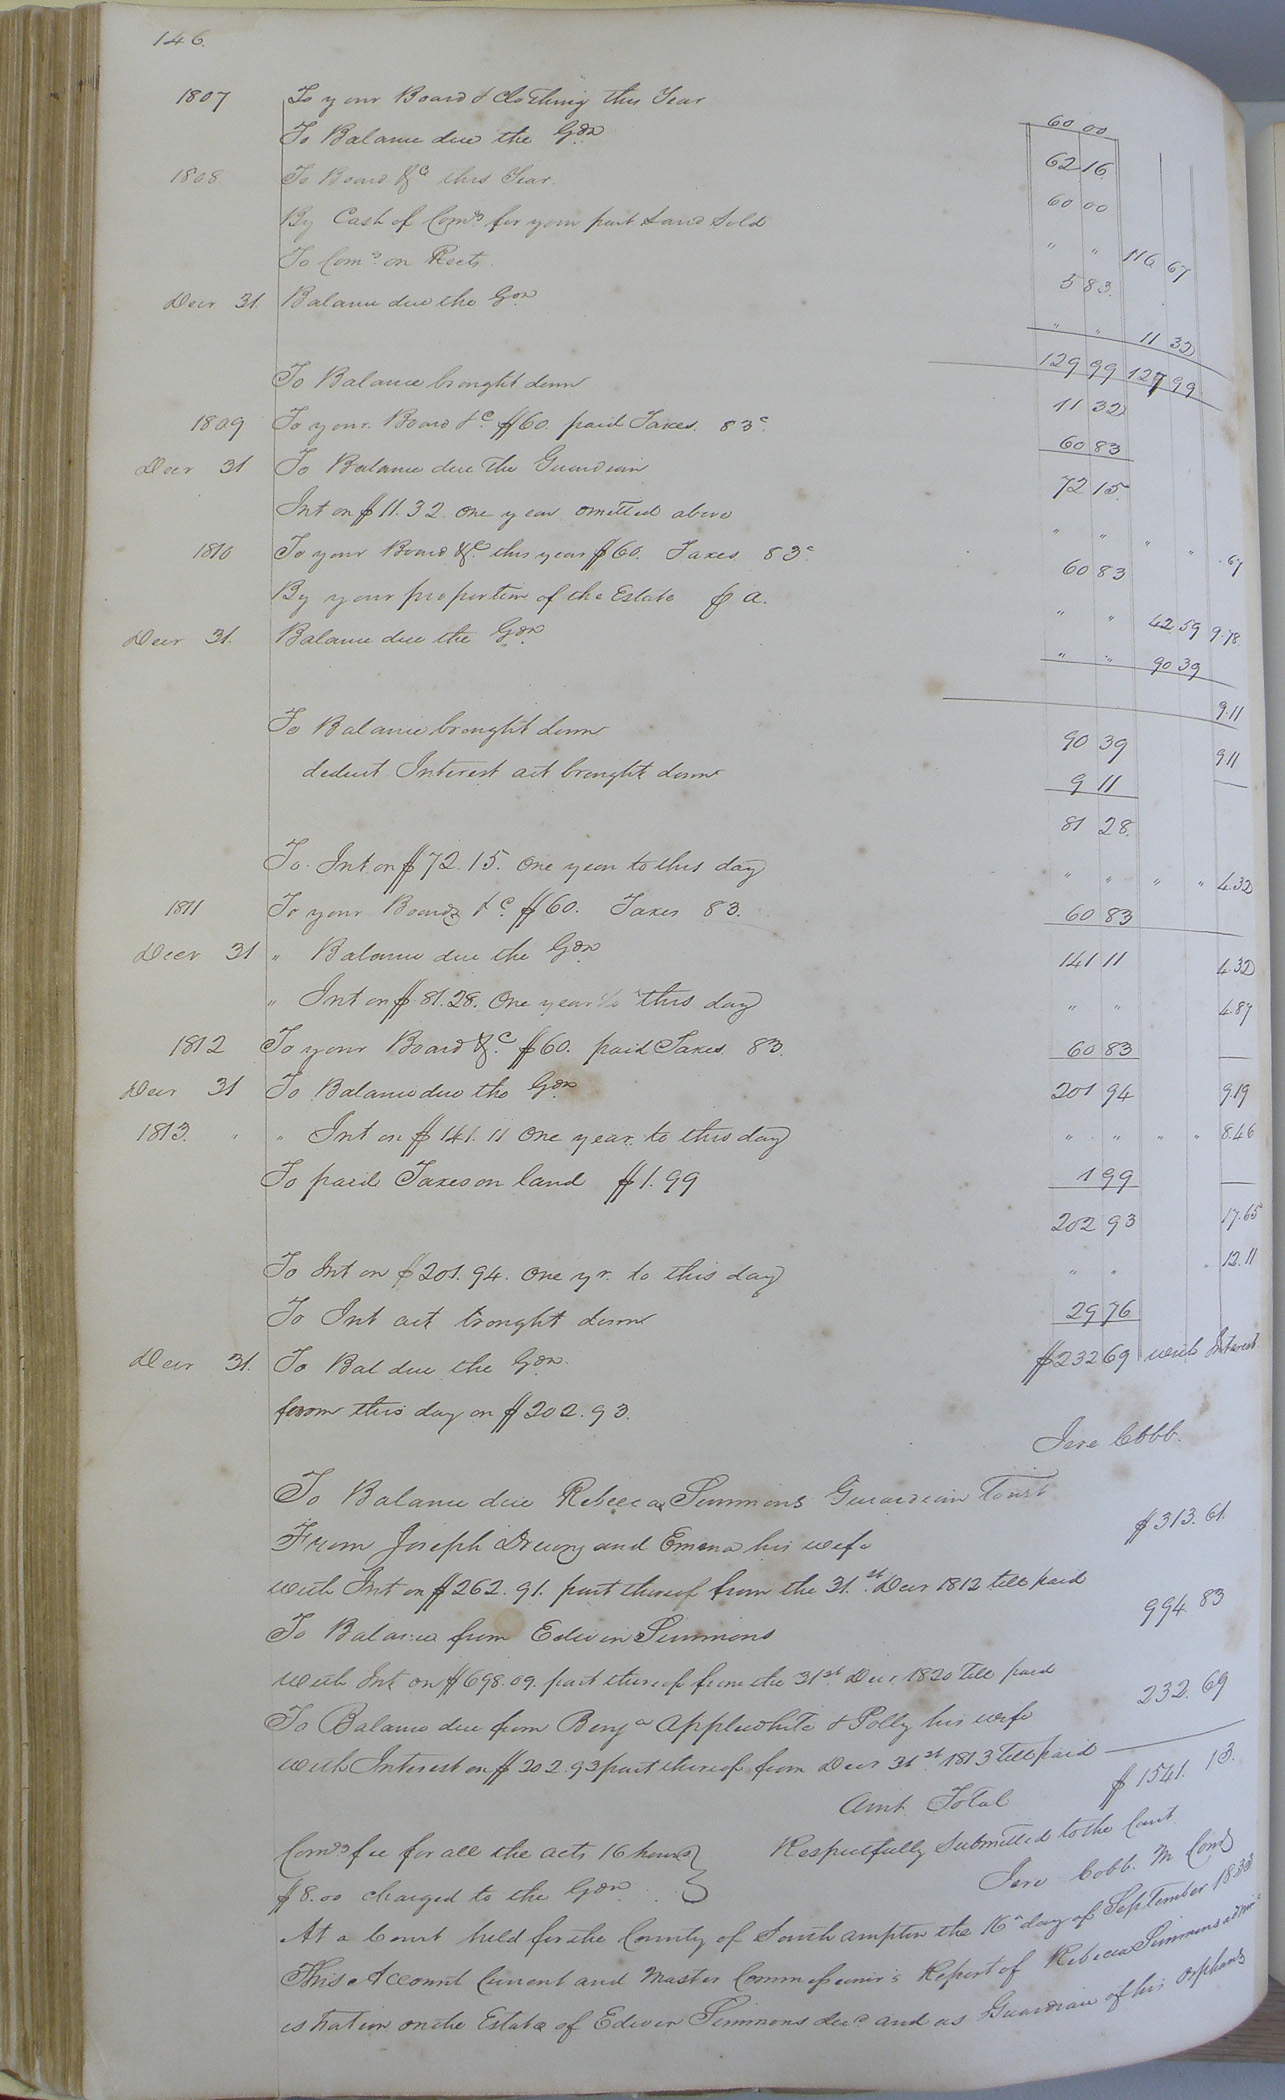 146.
1807 To your Board & Clothing this Year 60 00
To Balance due the Gdn 62 16
1808 To Board &c this Year. 60 00
By Cash of Comrs for your part Land Sold " " 116 67
To Coms. on Rects. 5 83.
Decr 31 Balance due the Gdn " " 11 32
129 99 127 99
To Balance brought down 11 32
1809 To your Board &c. $60. paid Taxes. 83c. 60 83
Decr 31 To Balance due the Guardian 72 15.
Int on $11.32 one year omitted above " " " " .67
1810 To your Board &c. this year $60. Taxes 83c 60 83
By your proportion of the Estate p a. " " 42 59 9.78.
Decr 31. Balance due the Gdn " " 90 39
9.11
To Balance brought down 90 39 9 11
deduct Interest act brought down 9 11
81 28.
To Int on $72.15. One year to this day " " " " 4.32
1811 To your Board &c. $60. Taxes 83. 60 83
Decr 31 " Balance due the Gdn 141 11 4.32
" Int on $81.28. One year to this day " " 4.87
1812 To your Board &c. $60. paid Taxes 83. 60 83
Decr 31 To Balance due the Gdn 201 94 9.19
1813. " " Int on $141.11 One year to this day " " " " 8.46
To paid Taxes on land $1.99 1 99
202 93 17.65
To Int on $201.94. One yr. to this day " " " 12.11
To Int act brought down 29 76
Decr 31. To Bal due the Gdn. $232 69 with Interest
from this day on $202.93.
Jere Cobb.
To Balance due Rebecca Simmons Guardian
From Joseph Drewry and Emma his wife $313.61.
with Int on $262.91. part thereof from the 31.st Decr 1812 till paid
To Balance from Edwin Simmons 994 83
with Int on $698.09. part thereof from the 31st Decr 1820 till paid
To Balance due from Benja Applewhite & Polly his wife 232.69
with Interest on $202.93 part thereof from Decr 31st 1813 till paid
Amt Total $1541.13.
Comrs fee for all the acts 16 hours } Respectfully Submitted to the Court
$8.00 charged to the Gdn. } Jere Cobb. M Comr
At a Court held for the County of Southampton the 16th day of September 1833
This Account Current and Master Commissioner's Report of Rebecca Simmons admin
istration on the Estate of Edwin Simmons decd and as Guardian of his Orphans